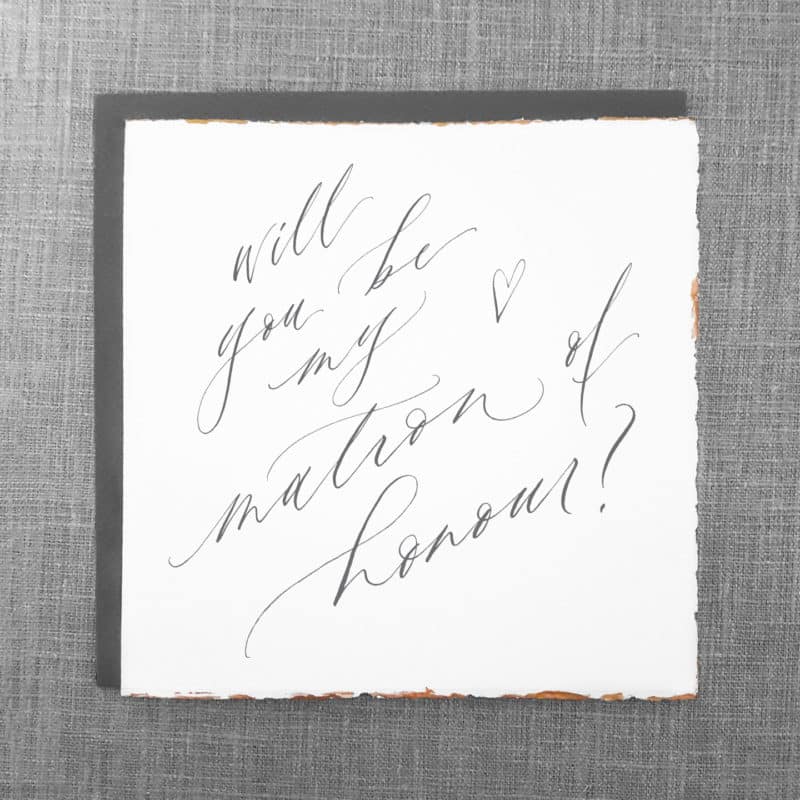 will
you be
my
matron of
honour?